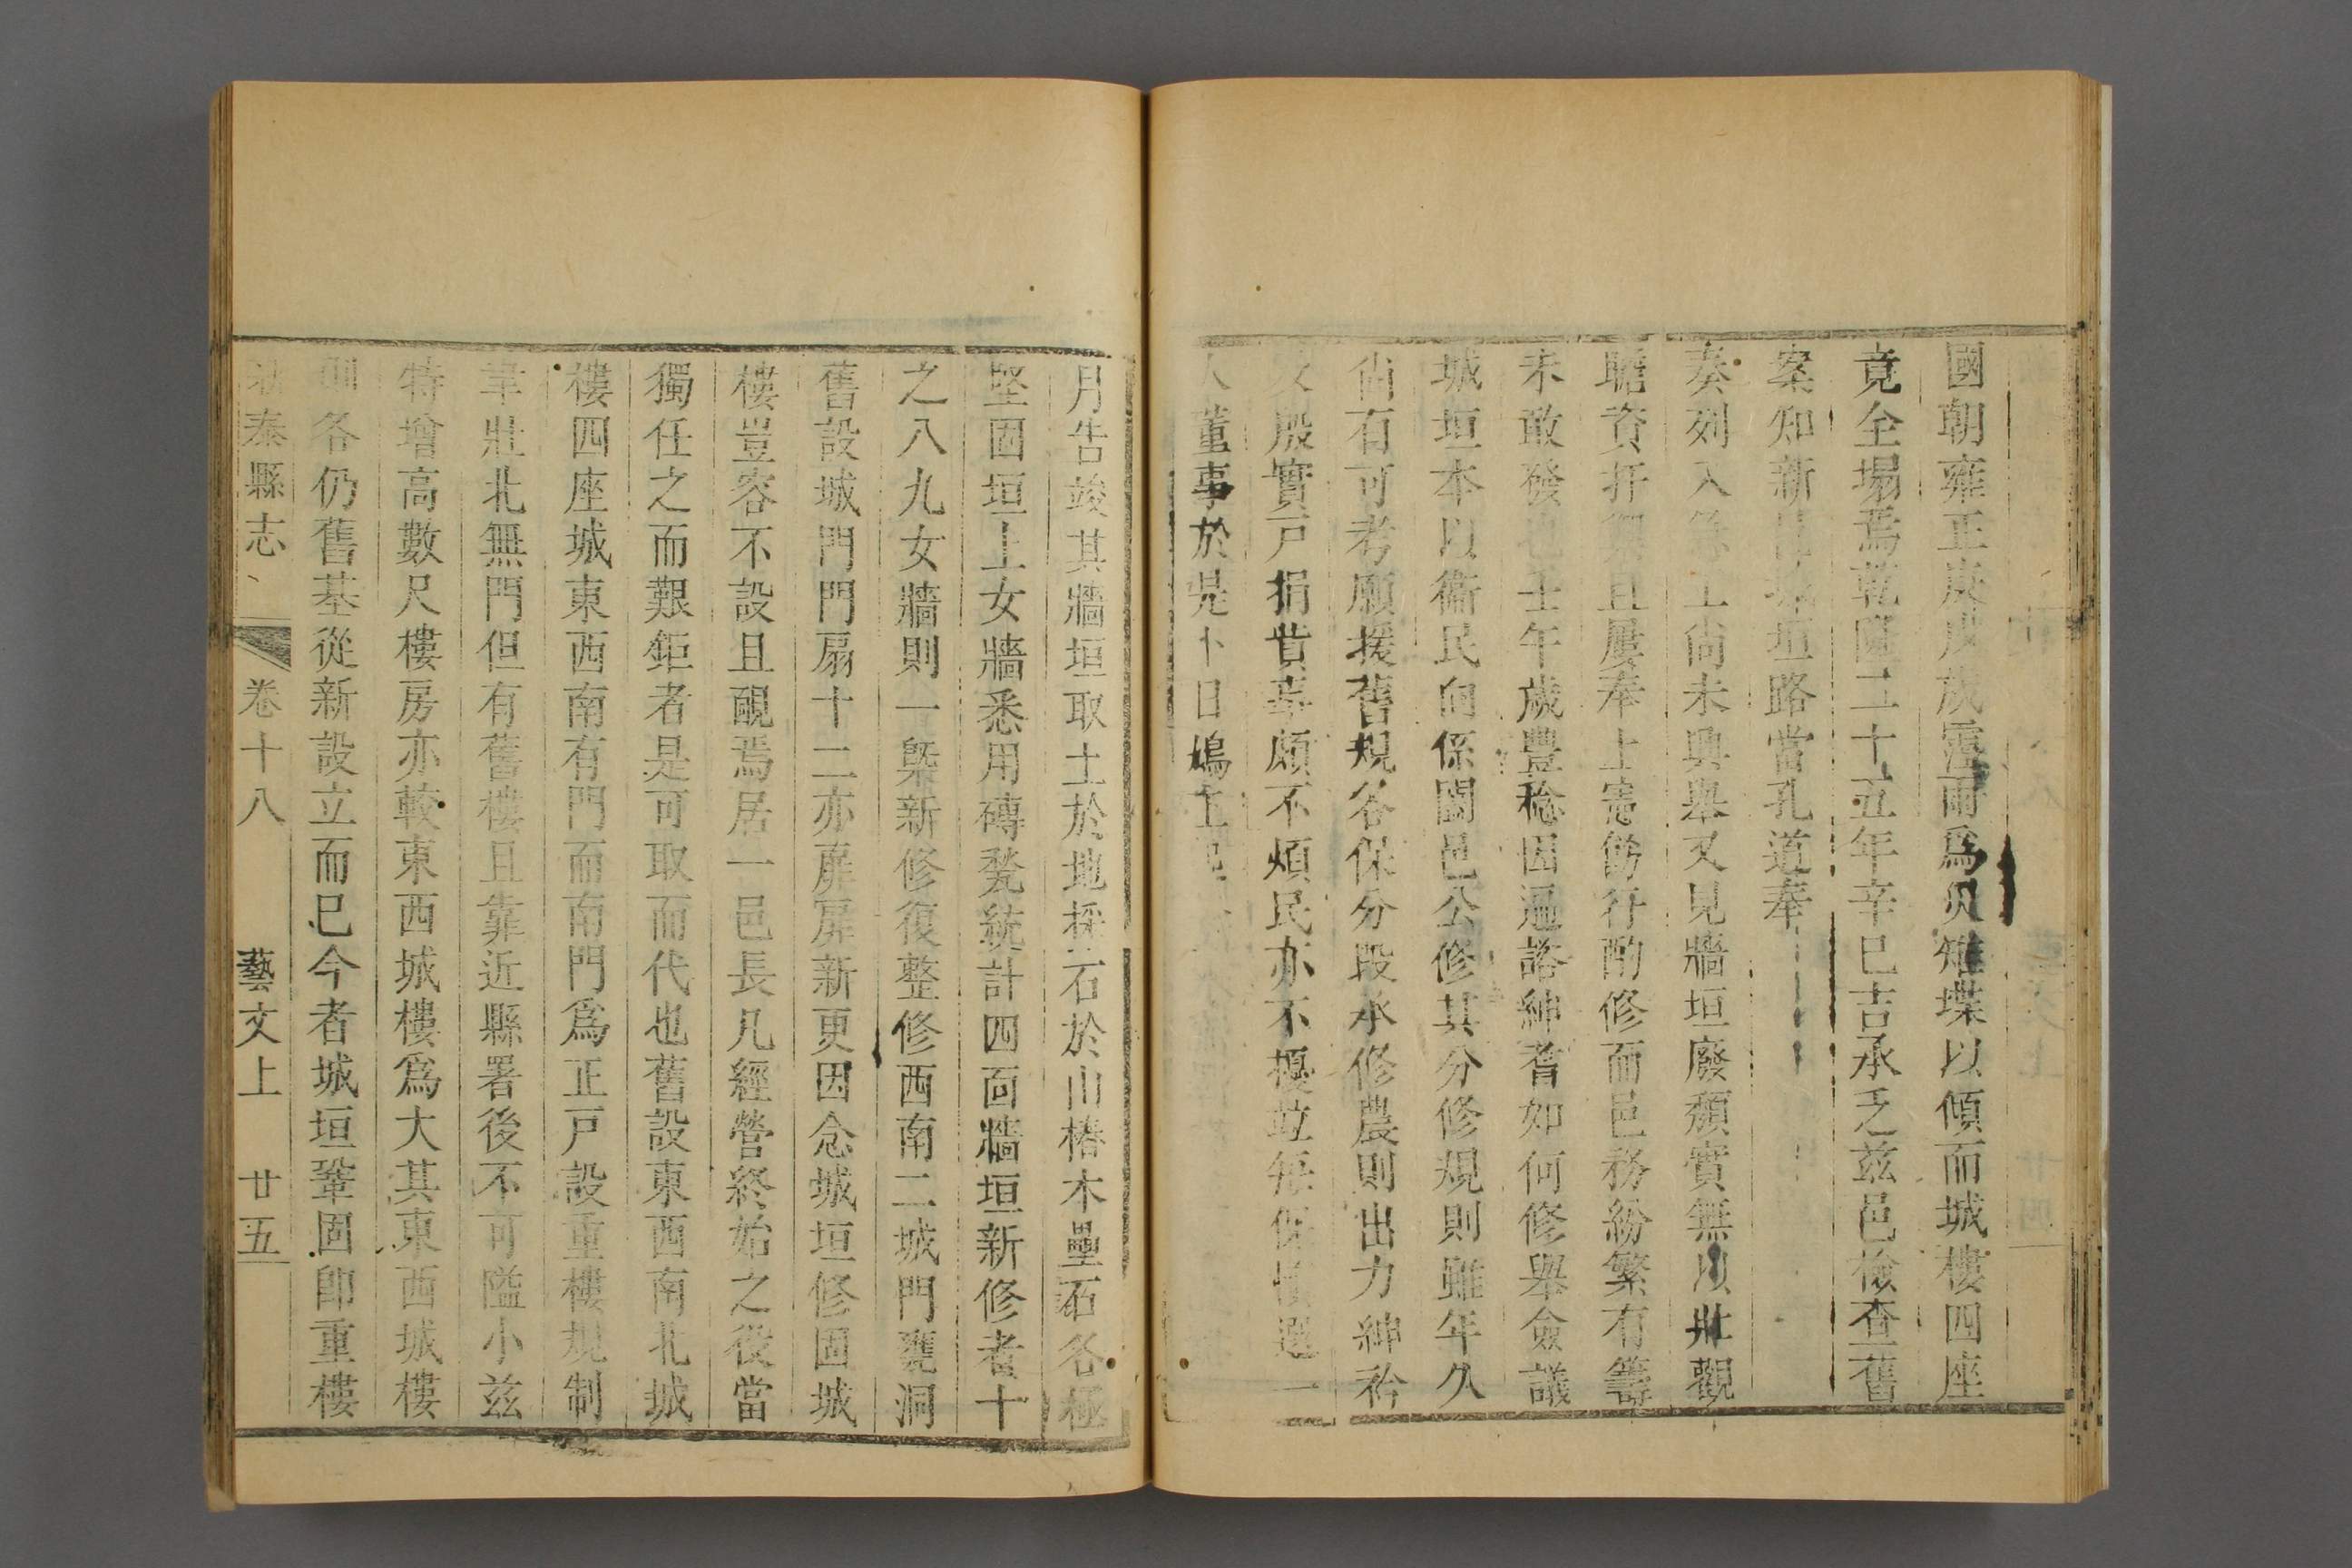 國朝雍正庚戌歲霪雨爲災雉堞以傾而城樓四座
竟全塌焉乾隆二十五年辛巳吉承乏兹邑檢查舊
案知新邑城垣路當孔道奉
奏列入緩工尚未興舉又見牆垣廢頹實無以壯觀
瞻資扞且屢奉上憲飭行酌修而邑務紛繁有籌
未敢發也壬午歲豐稔因遍諮紳耆如何修舉僉議
城垣本以衞民向係闔邑公修其分修規則雖年久
尚有可考願援舊規各保分段承修農則出力紳衿
及殷實戸捐貲毫頗不煩民亦不擾竝每保慎選一
人董事於是卜日鳩工
月告竣其牆垣取土於地採石於山樁木壘石各極
堅固垣上女牆悉用磚甃統計四面牆垣新修者十
之八九女牆則一槩新修復整修西南二城門甕洞
舊設城門門扇十二亦扉扉新更因念城垣修固城
樓豈容不設且覼焉居一邑長凡經營終始之役當
獨任之而艱鉅者是可取而代也舊設東西南北城
樓四座城東西南有門而南門爲正戸設重樓規制
葦壯北無門但有舊樓且靠近縣署後不可隘小兹
特增高數尺樓房亦較東西城樓爲大其東西城樓
則各仍舊基從新設立而已今者城垣鞏固卽重樓
新泰縣志 卷十八 藝文上 廿五